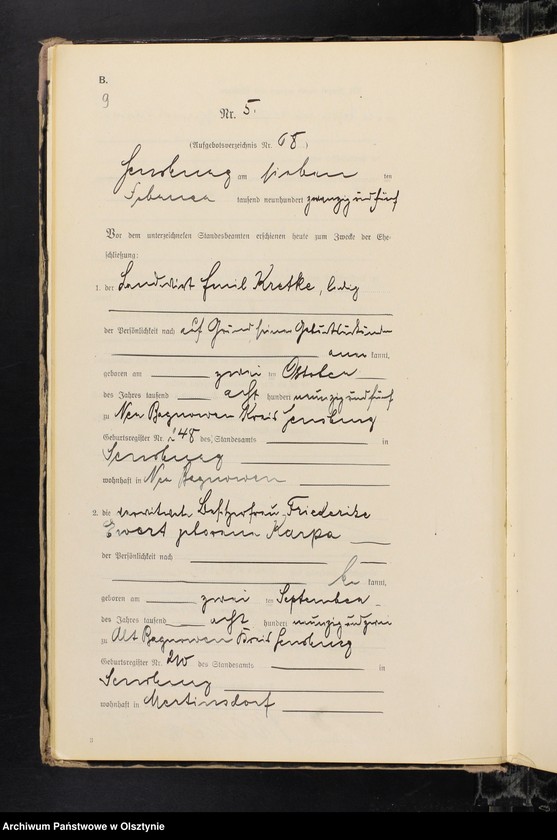 B.
9
Nr. 5.
(Aufgebotsverzeichnis Nr. 68)
Sensburg am sieben ten
Februar tausend neunhundert zwanzig und fünf
Vor dem unterzeichneten Standesbeamten erschienen heute zum Zwecke der Ehe-
schließung:
1. der Landwirt Emil Kretke, ledig
der Persönlichkeit nach auf Grund seiner Geburtsurkunde
aner kannt,
geboren am zwei ten Oktober
des Jahres tausend acht hundert neunzig und fünf
zu Neu Bagnowen Kreis Sensburg
Geburtsregister Nr. 248 des Standesamts in
Sensburg
wohnhaft in Neu Bagnowen
2. die verwitwete Besitzerfrau Friederike
Ewert geborene Karpa
der Persönlichkeit nach
be kannt,
geboren am zwei ten September
des Jahres tausend acht hundert neunzig und zwei
zu Alt Bagnowen Kreis Sensburg
Geburtsregister Nr. 210 des Standesamts in
Sensburg
wohnhaft in Mertinsdorf
Archiwum Państwowe w Olsztynie